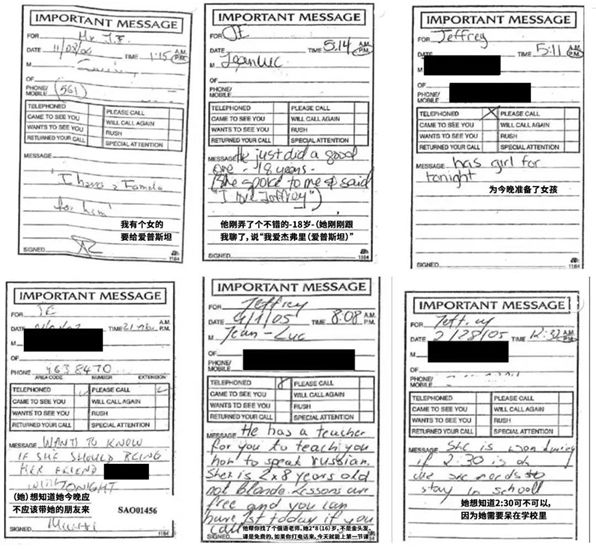 IMPORTANT MESSAGE
FOR Mr J.E.
DATE TIME 1:15 A.M. P.M.
M
OF
PHONE/
MOBILE (561)
TELEPHONED PLEASE CALL
CAME TO SEE YOU WILL CALL AGAIN
WANTS TO SEE YOU RUSH
RETURNED YOUR CALL SPECIAL ATTENTION
MESSAGE
"I have a Female
for him"
我有个女的
要给爱普斯坦
SIGNED
1184
IMPORTANT MESSAGE
FOR JE
DATE TIME 5:14 A.M. P.M.
M Jean Luc
OF
PHONE/
MOBILE
TELEPHONED PLEASE CALL
CAME TO SEE YOU WILL CALL AGAIN
WANTS TO SEE YOU RUSH
RETURNED YOUR CALL SPECIAL ATTENTION
MESSAGE He just did a good
one - 18 years -
(She spoke to me & said
"I love Jeffrey")
他刚弄了个不错的-18岁-(她刚刚跟
我聊了,说“我爱杰弗里(爱普斯坦)”
SIGNED
1184
IMPORTANT MESSAGE
FOR Jeffrey
DATE TIME 5:11 A.M. P.M.
M
OF
PHONE/
MOBILE
TELEPHONED X PLEASE CALL
CAME TO SEE YOU WILL CALL AGAIN
WANTS TO SEE YOU RUSH
RETURNED YOUR CALL SPECIAL ATTENTION
MESSAGE has girl for
tonight
为今晚准备了女孩
SIGNED
1184
IMPORTANT MESSAGE
FOR JE
DATE TIME A.M. P.M.
M
OF
PHONE 4638470
AREA CODE NUMBER EXTENSION
TELEPHONED PLEASE CALL
CAME TO SEE YOU WILL CALL AGAIN
WANTS TO SEE YOU RUSH
RETURNED YOUR CALL SPECIAL ATTENTION
MESSAGE WANTS TO KNOW
IF SHE SHOULD BRING
HER FRIEND
TONIGHT
(她)想知道她今晚应
不应该带她的朋友来
SAO01456
SIGNED
IMPORTANT MESSAGE
FOR Jeffrey
DATE /1/05 TIME 8:08 A.M. P.M.
M Jean-Luc
OF
PHONE/
MOBILE
TELEPHONED PLEASE CALL
CAME TO SEE YOU WILL CALL AGAIN
WANTS TO SEE YOU RUSH
RETURNED YOUR CALL SPECIAL ATTENTION
MESSAGE He has a teacher
for you to teach you
how to speak russian.
She is 2x8 years old
not blonde. Lessons are
free and you can
have 1st today if you
call
他帮你找了个俄语老师,她2*8 (16) 岁,不是金头发,
课是免费的,如果你打电话来,今天就能上第一节课
IMPORTANT MESSAGE
FOR Jeffrey
DATE 2/28/05 TIME 12:32 A.M. P.M.
M
OF
PHONE/
MOBILE
TELEPHONED PLEASE CALL
CAME TO SEE YOU WILL CALL AGAIN
WANTS TO SEE YOU RUSH
RETURNED YOUR CALL SPECIAL ATTENTION
MESSAGE She is wondering
if 2:30 is ok
she needs to
stay in school
她想知道2:30可不可以,
因为她需要呆在学校里
SIGNED
1184